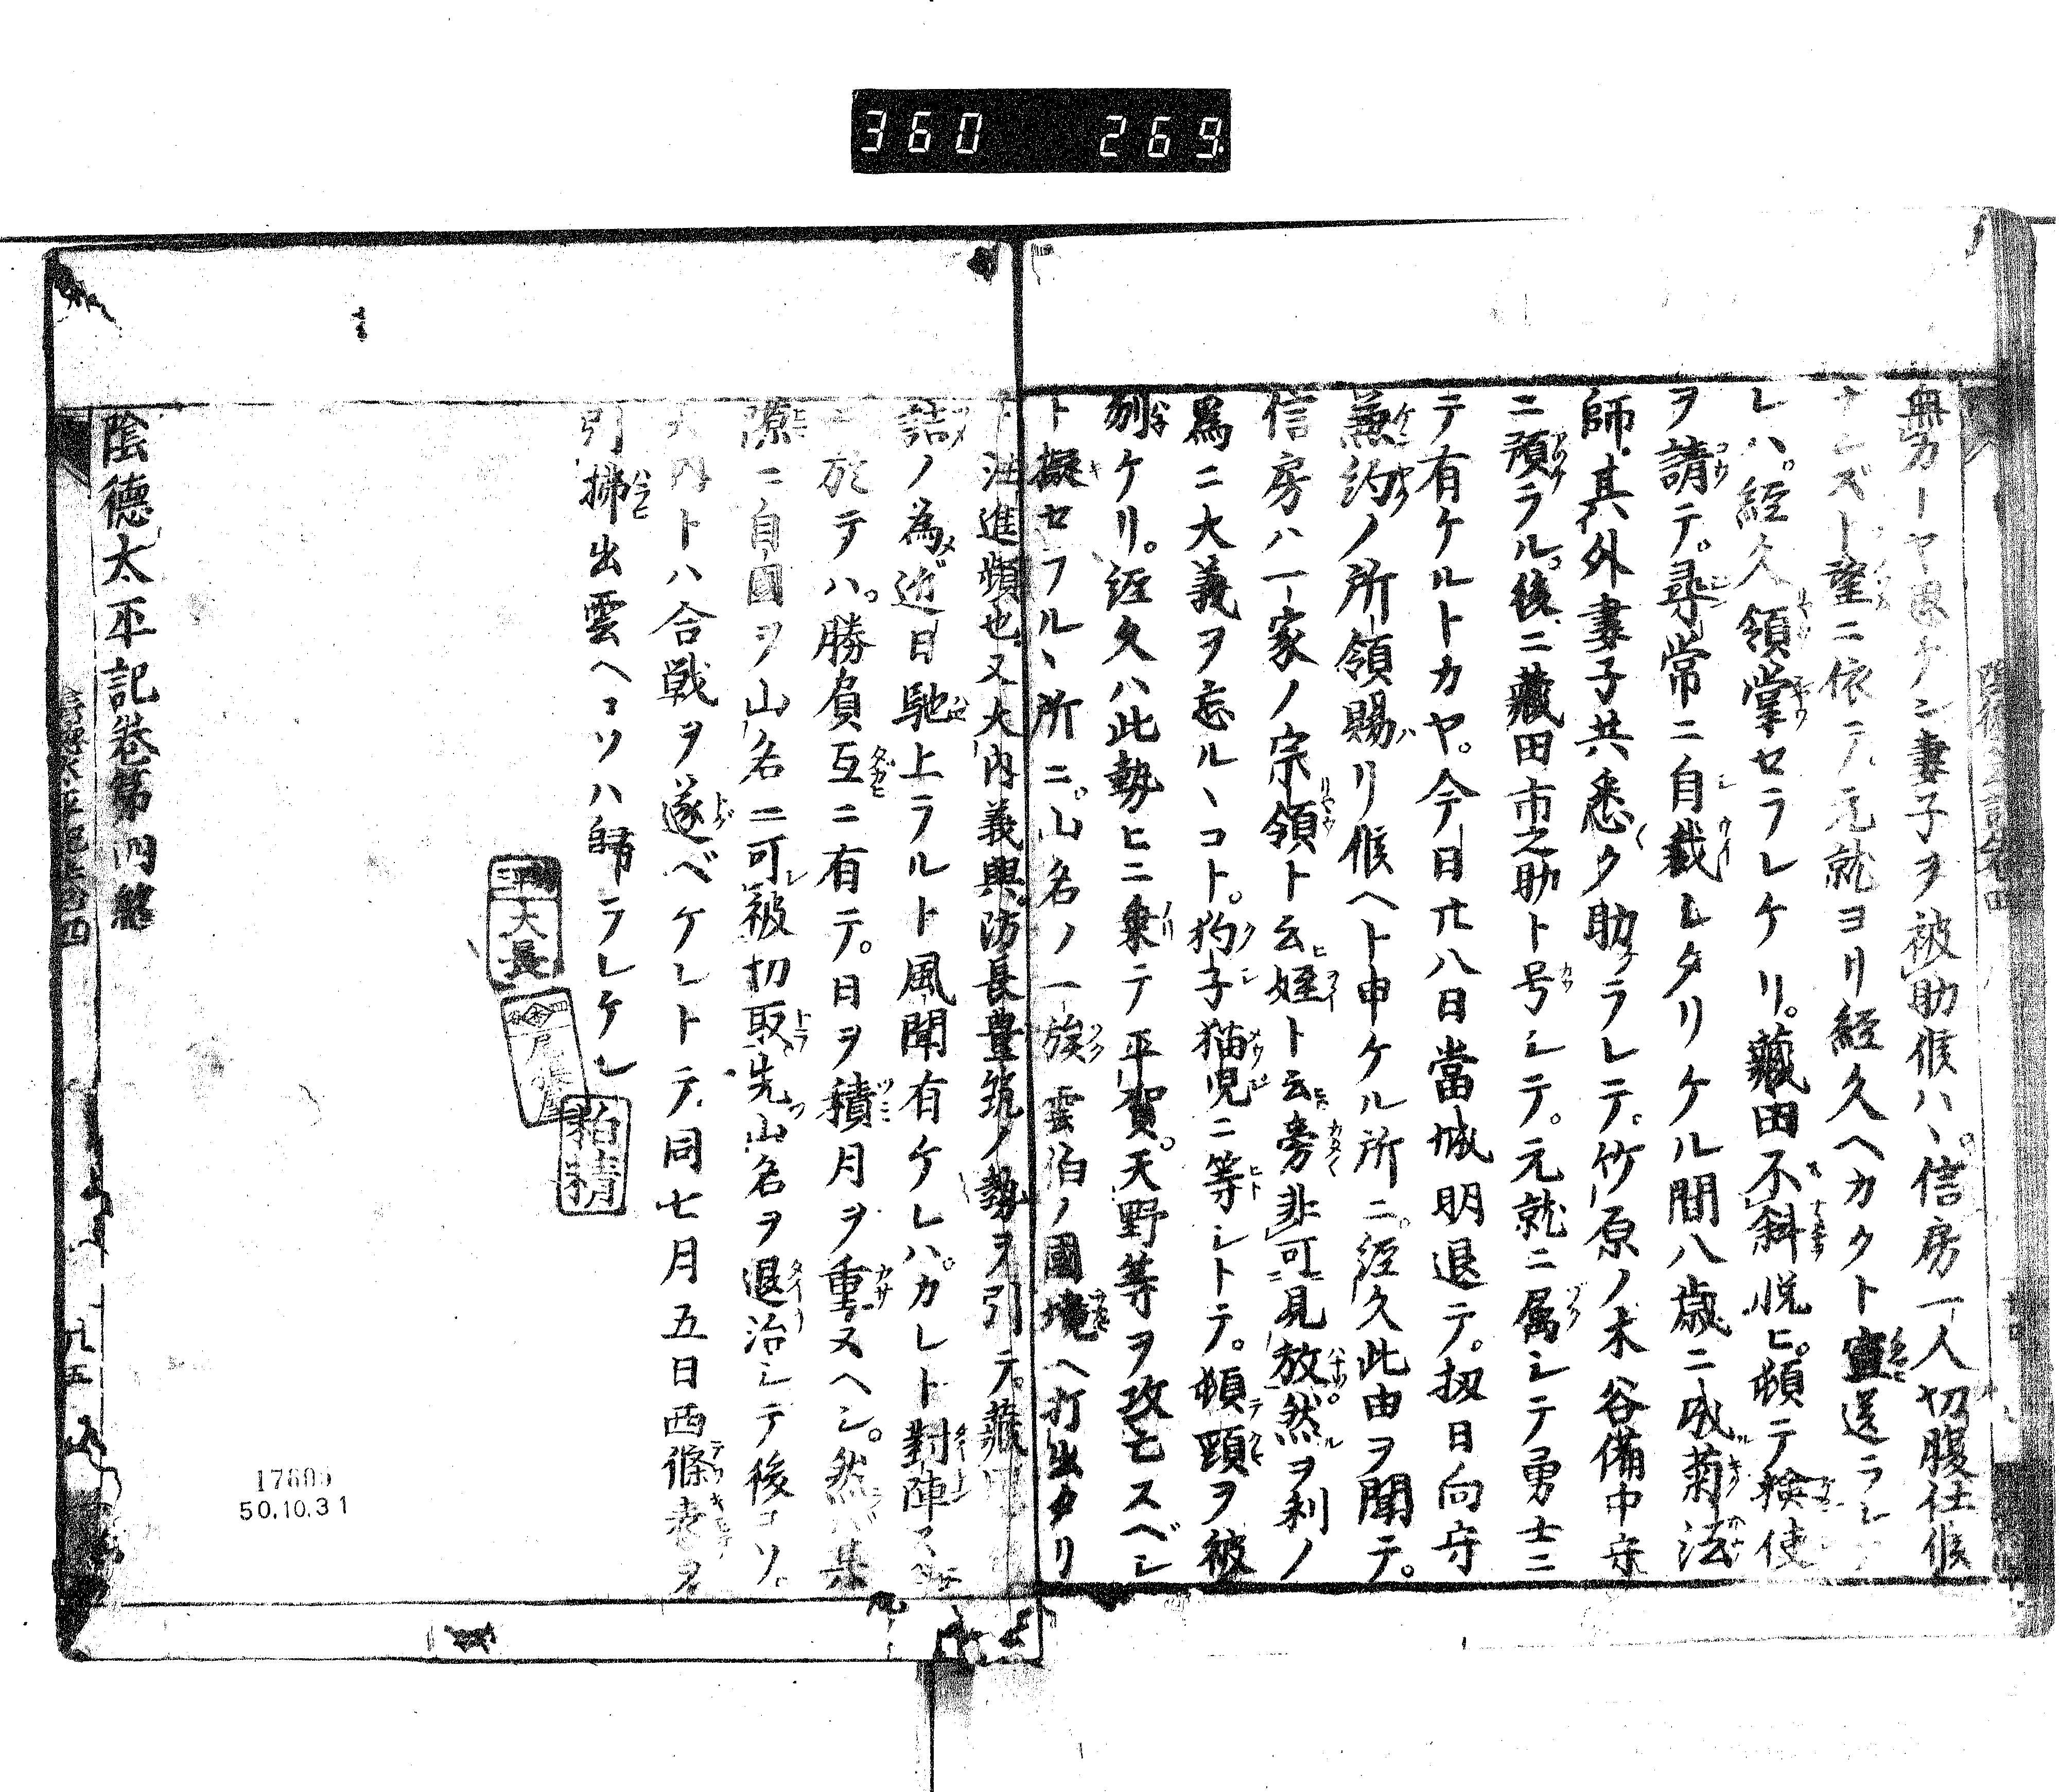 360 269
無力一ヤ思ケン妻子ヲ被助候ハヽ。信房一人切腹仕候
ナンズト望ニ依テ元就ヨリ経久ヘカクト宣送ラレ
レハ。経久領掌セラレケリ。藏田不斜悦ヒ。頓テ検使
ヲ請テ。尋常ニ自裁シタリケル間八歳ニ成菊法
師。其外妻子共悉ク助ケラレテ。竹原ノ木谷備中守
ニ預ラル。後ニ藏田市之助ト号シテ。元就ニ属シテ勇士ニ
テ有ケルトカヤ。今日廿八日當城明退テ。扨日向守
兼約ノ所領賜リ候ヘト申ケル所ニ。経久此由ヲ聞テ。
信房ハ一家ノ宗領ト云姪ト云旁非可見放然ヲ利ノ
為ニ大義ヲ忘ルヽコト。狗子猫児ニ等シトテ。頓頸ヲ被
刎ケリ。経久ハ此勢ヒニ乗テ平賀。天野等ヲ攻亡スベシ
ト擬セラルヽ所ニ。山名ノ一族雲伯ノ國境ヘ打出タリ
ト注進頻也。又大内義興。防長豊筑ノ勢ヲ引テ。藏田
詰ノ為近日馳上ラルト風聞有ケレハ。カレト對陣ス
於テハ。勝負互ニ有テ。日ヲ積月ヲ重ヌヘシ。然ハ其
隙ニ自國ヲ山名ニ可被切取。先山名ヲ退治シテ後コソ。
大内トハ合戦ヲ遂ベケレトテ。同七月五日西條表ヲ
引拂出雲ヘコソハ歸ラレケレ
陰德太平記巻第四終
平大長
柏精
17609
50.10.31